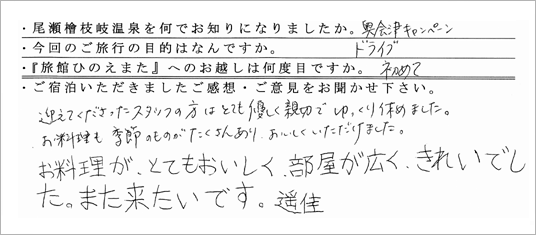 ・尾瀬檜枝岐温泉を何でお知りになりましたか。奥会津キャンペーン
・今回のご旅行の目的はなんですか。 ドライブ
・『旅館ひのえまた』へのお越しは何度目ですか。 初めて
・ご宿泊いただきましたご感想・ご意見をお聞かせ下さい。
迎えてくださったスタッフの方はとても優しく親切でゆっくり休めました。
お料理も季節のものがたくさんあり、おいしくいただけました。
お料理が、とてもおいしく、部屋が広く、きれいでし
た。また来たいです。遥佳